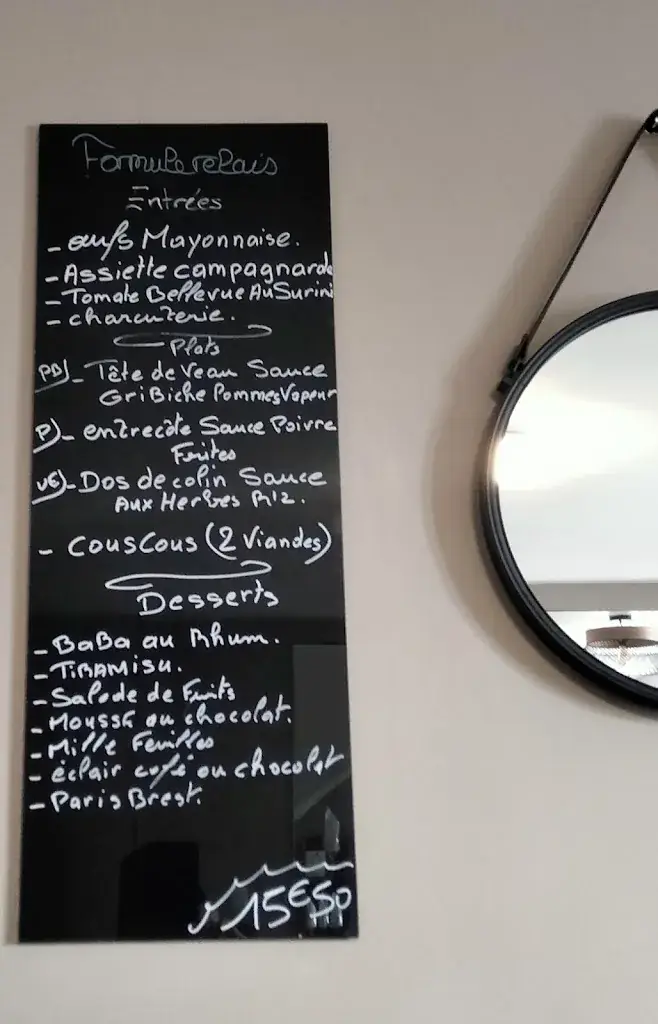 Formule relais
Entrées
- œufs Mayonnaise.
- Assiette campagnarde
- Tomate Bellevue Au Surimi
- charcuterie.
Plats
PDJ - Tête de Veau Sauce
GriBiche Pommes Vapeur
P) - entrecôte Sauce Poivre
Frites
VE) - Dos de colin Sauce
Aux Herbes Riz.
- couscous (2 Viandes)
Desserts
- BaBa au Rhum.
- TiRAMiSU.
- Salade de Fruits
- Mousse au chocolat.
- Mille Feuilles
- éclair café ou chocolat
- Paris Brest.
15€50